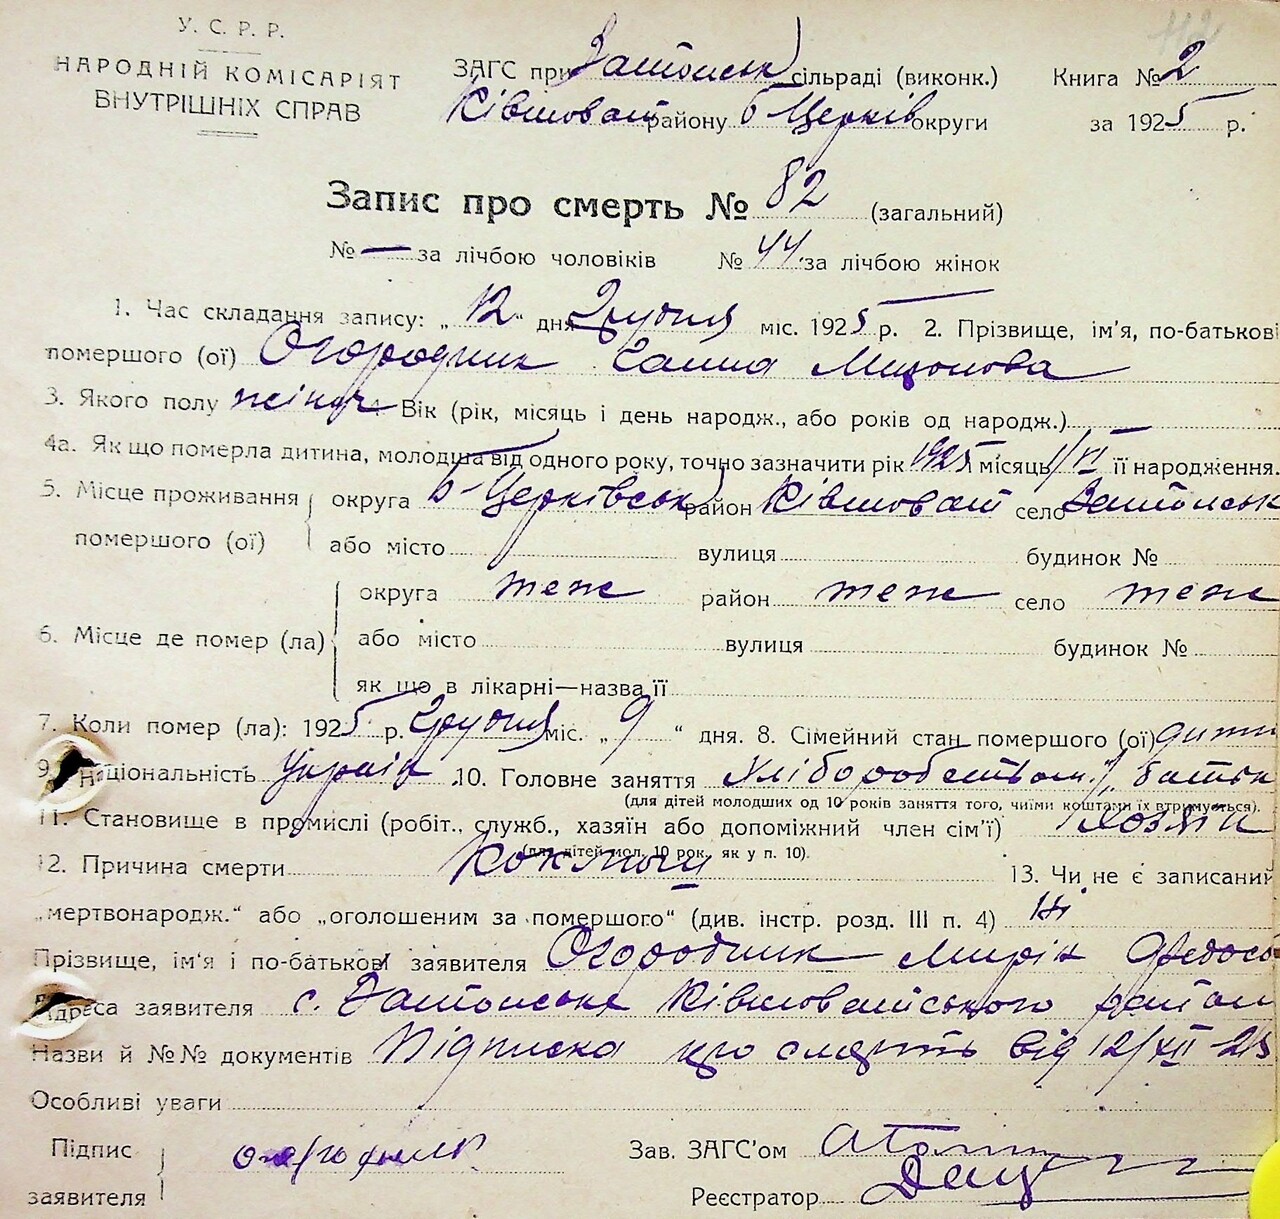 112
У. С. Р. Р.
НАРОДНІЙ КОМІСАРІЯТ
ВНУТРІШНІХ СПРАВ
ЗАГС при Затонськ сільраді (виконк.) Книга № 2
Ківшоват району Б Церків округи за 1925 р.
Запис про смерть № 82 (загальний)
№ — за лічбою чоловіків № 44 за лічбою жінок
1. Час складання запису: „ 12 “ дня Грудня міс. 1925 р. 2. Прізвище, ім'я, по-батькові
помершого (ої) Огородник Ганна
3. Якого полу жіноч Вік (рік, місяць і день народж., або років од народж.) —
4а. Як що померла дитина, молодша від одного року, точно зазначити рік 1925 місяць 1/VI її народження.
5. Місце проживання округа Б-Церківськ район Ківшоват село Затонськ
помершого (ої) або місто вулиця будинок №
округа теж район теж село теж
6. Місце де помер (ла) або місто вулиця будинок №
як що в лікарні—назва її
7. Коли помер (ла): 1925 р. Грудня міс. „ 9 “ дня. 8. Сімейний стан помершого (ої) дити
9. Національність Україн 10. Головне заняття Хліборобством батьк
(для дітей молодших од 10 років заняття того, чиїми коштами їх втримується).
11. Становище в промислі (робіт., служб., хазяїн або допоміжний член сім'ї) Хозяїн
(для дітей мол. 10 рок. як у п. 10).
12. Причина смерти Коклюш 13. Чи не є записаний
„мертвонародж.“ або „оголошеним за помершого“ (див. інстр. розд. III п. 4) Ні
Прізвище, ім'я і по-батькові заявителя Огородник Федосо
Адреса заявителя с. Затонське Ківшоватського району
Назви й №№ документів Підписка про смерть від 12/XII-25
Особливі уваги
Підпис Зав. ЗАГС'ом
заявителя Реєстратор